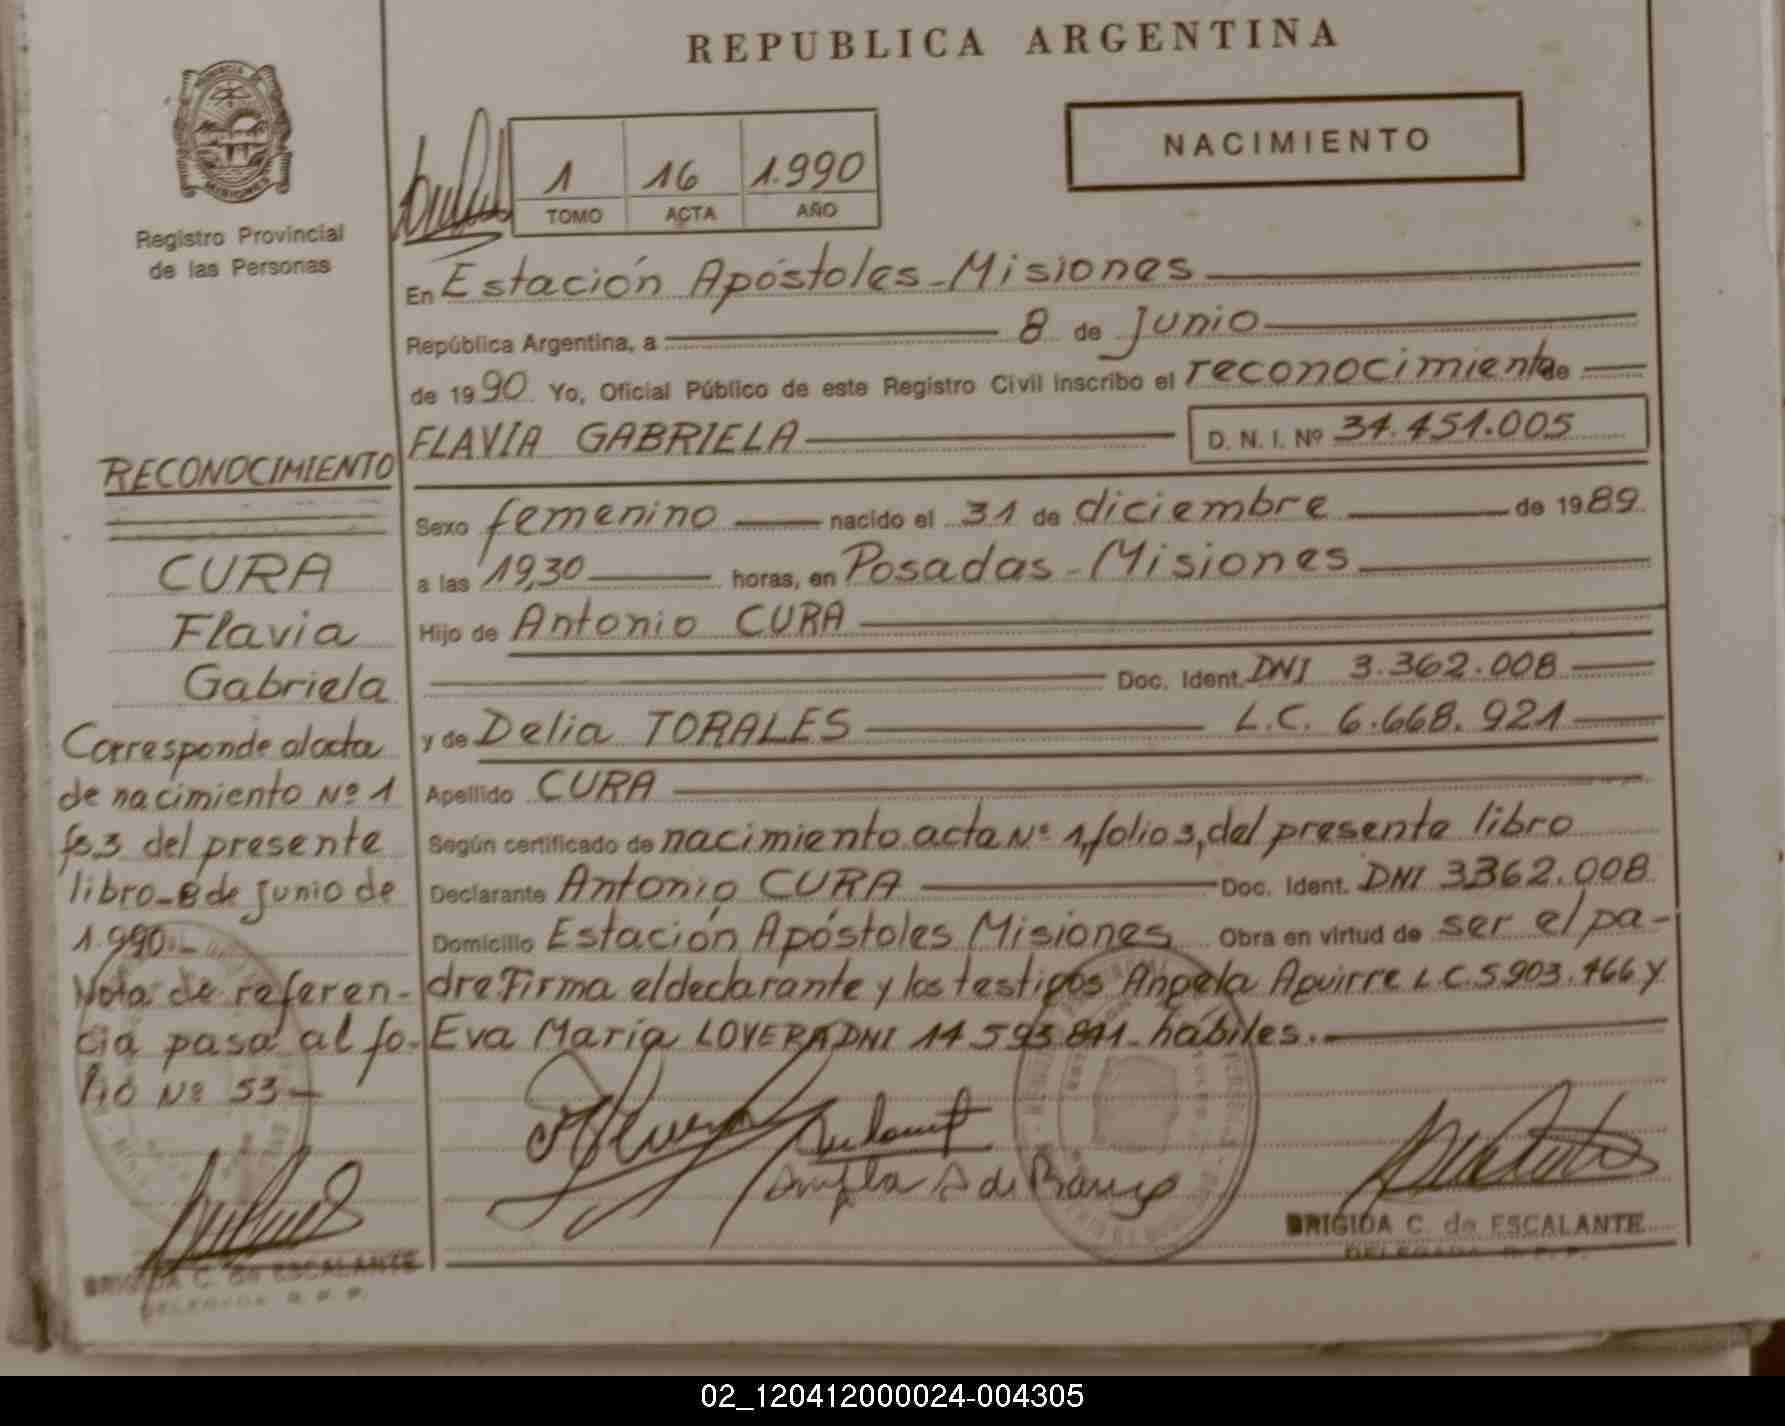 REPUBLICA ARGENTINA
PROVINCIA
MISIONES
Registro Provincial
de las Personas
1 16 1.990
TOMO ACTA AÑO
NACIMIENTO
En Estación Apóstoles - Misiones
República Argentina, a 8 de Junio
de 1990 Yo, Oficial Público de este Registro Civil inscribo el reconocimiento de
FLAVIA GABRIELA D. N. I. Nº 34.451.005
Sexo femenino nacido el 31 de diciembre de 1989
a las 19,30 horas, en Posadas - Misiones
Hijo de Antonio CURA
Doc. Ident. DNI 3.362.008
y de Delia TORALES L.C. 6.668.921
Apellido CURA
Según certificado de nacimiento acta Nº 1, folio 3, del presente libro
Declarante Antonio CURA Doc. Ident. DNI 3362.008
Domicilio Estación Apóstoles Misiones Obra en virtud de ser el pa-
dre Firma el declarante y los testigos Angela Aguirre L.C. 5.903.466 y
Eva María LOVERA DNI 14.593.811 - hábiles.
BRIGIDA C. de ESCALANTE
DELEGADA R. P. P.
RECONOCIMIENTO
CURA
Flavia
Gabriela
Corresponde al acta
de nacimiento Nº 1
fo 3 del presente
libro - 8 de Junio de
1.990 -
Nota de referen-
cia pasa al fo-
lio Nº 53 -
BRIGIDA C. de ESCALANTE
DELEGADA R. P. P.
02_120412000024-004305